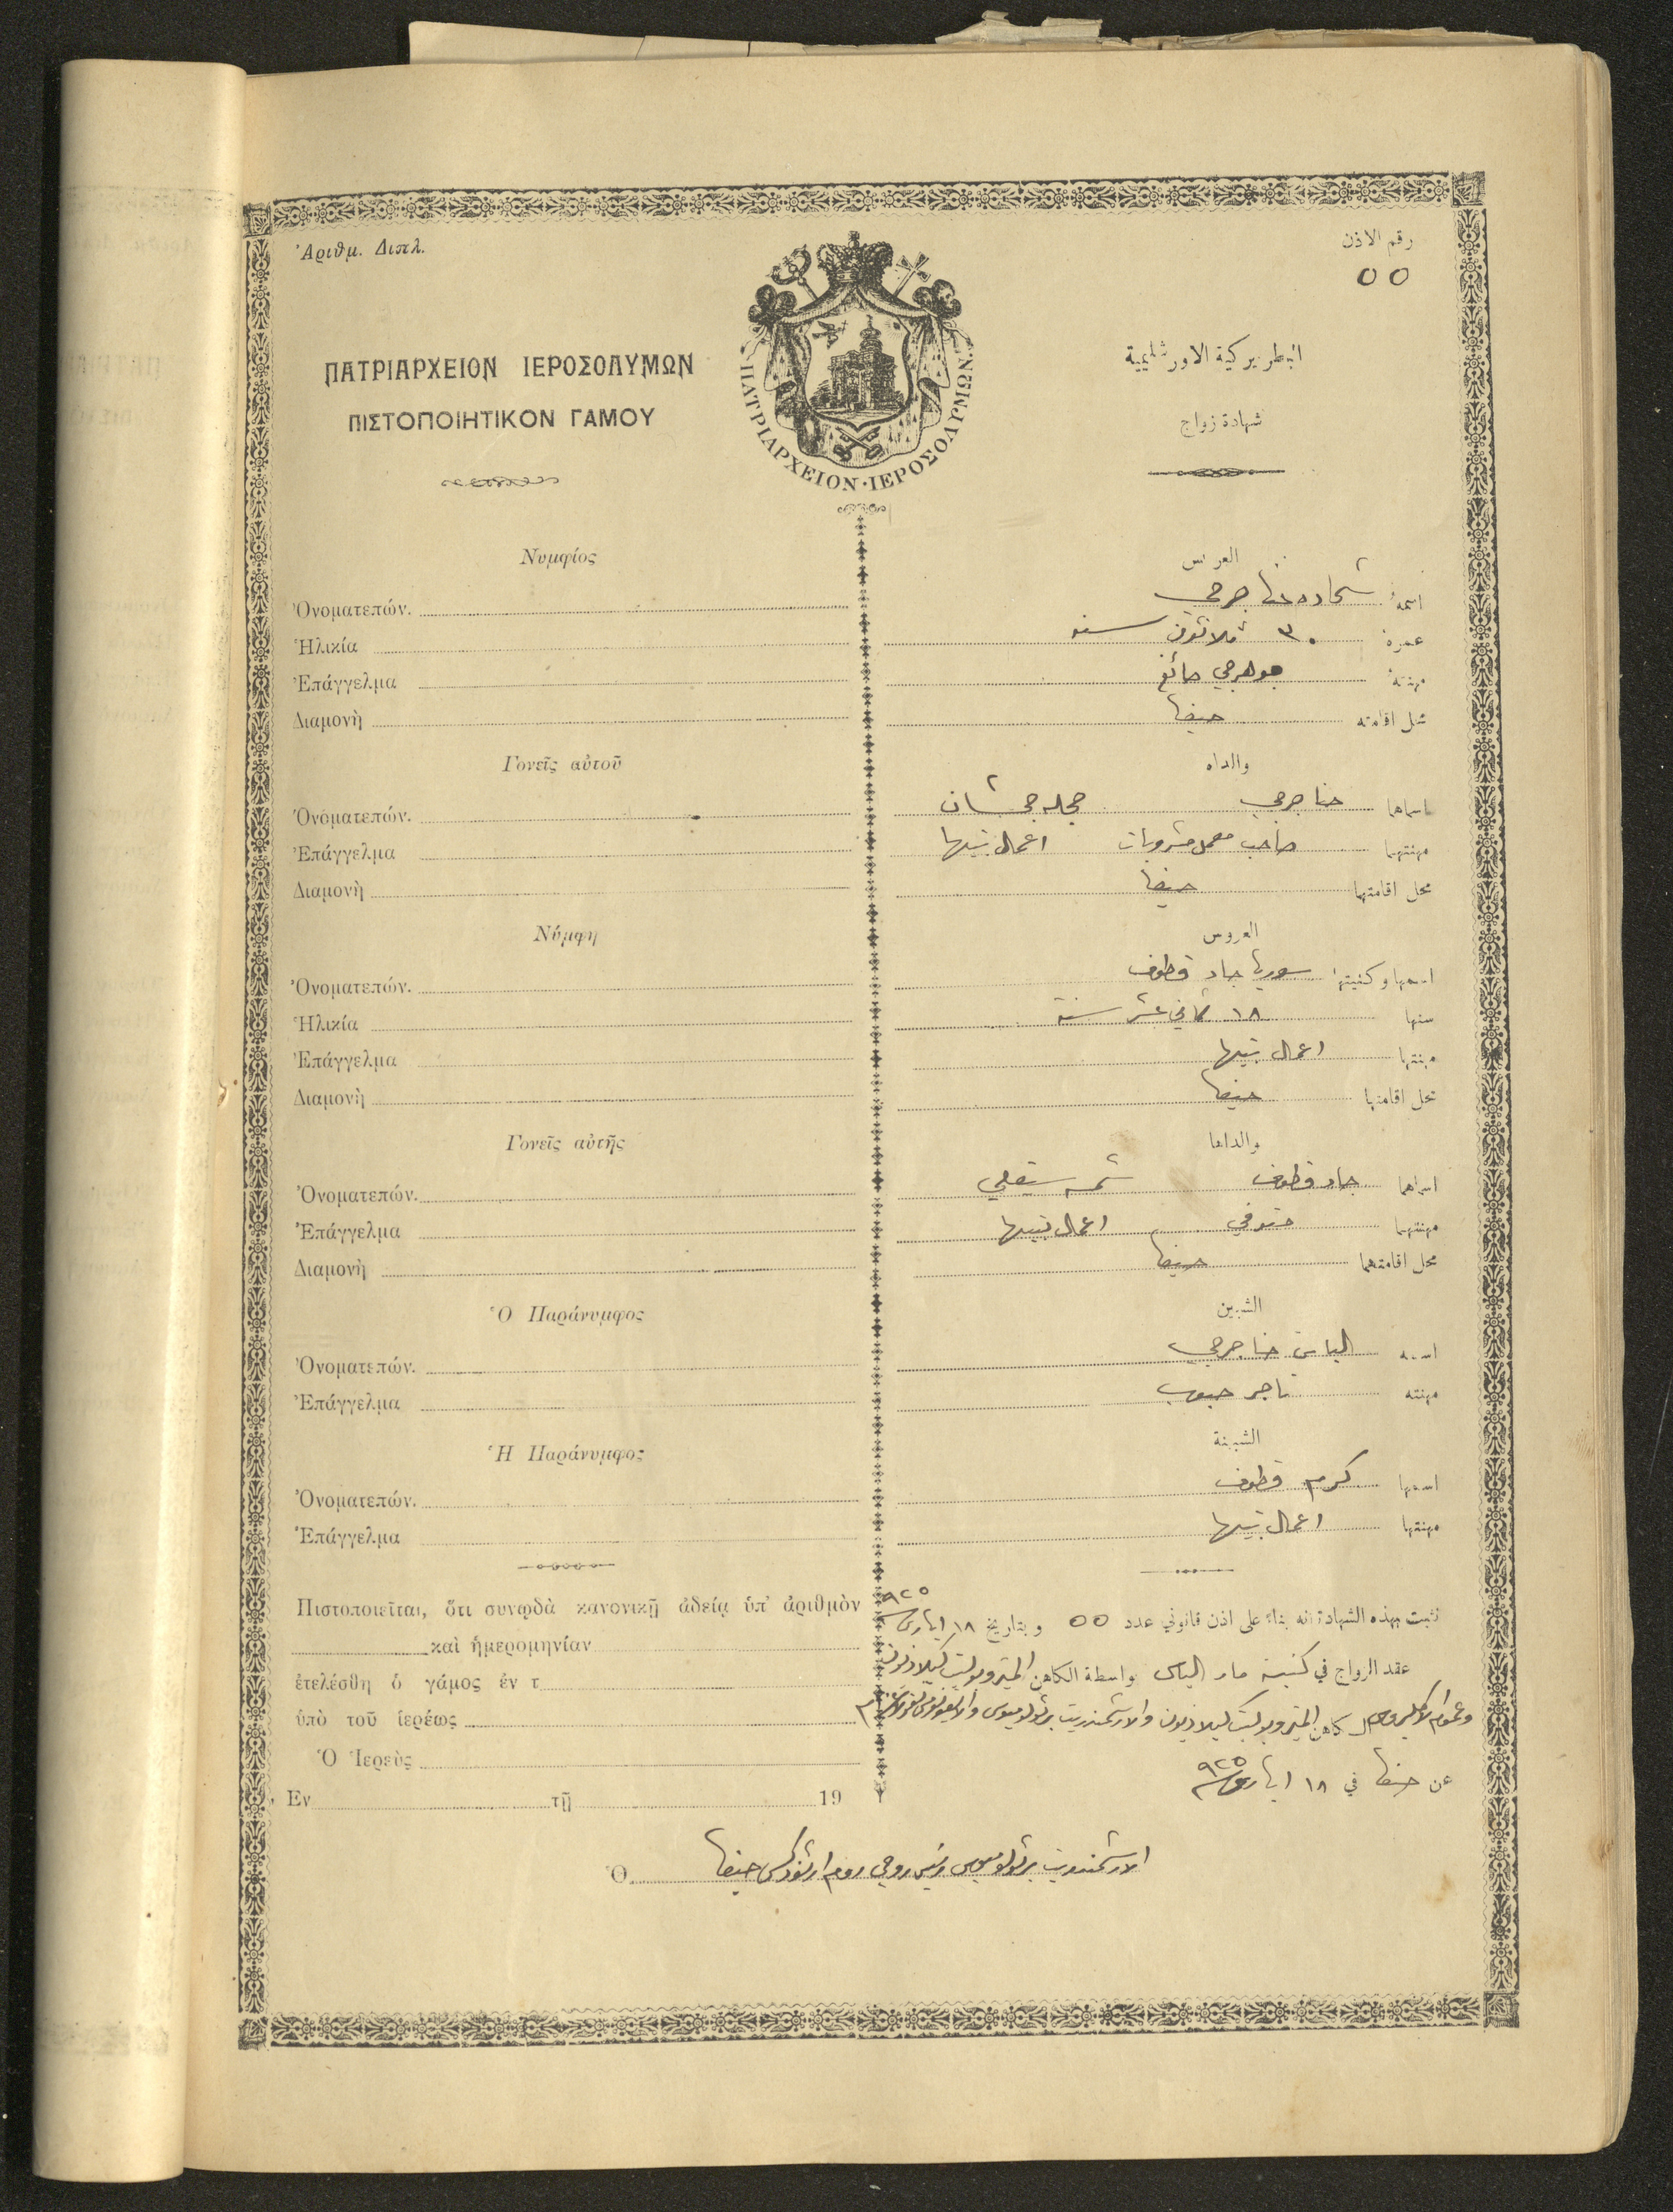 Ἀριθμ. Διπλ.
رقم الاذن
٥٥
ΠΑΤΡΙΑΡΧΕΙΟΝ ΙΕΡΟΣΟΛΥΜΩΝ
البطريركية الاورشليمية
ΠΙΣΤΟΠΟΙΗΤΙΚΟΝ ΓΑΜΟΥ
شهادة زواج
ΠΑΤΡΙΑΡΧΕΙΟΝ·ΙΕΡΟΣΟΛΥΜΩΝ
Νυμφίος
العريس
Ὀνοματεπών.
اسمه شحاده حنا جرجي
Ἡλικία
عمره ٣٠ ثلاثون سنه
Ἐπάγγελμα
مهنته جوهرجي صائغ
Διαμονὴ
محل اقامته حيفا
Γονεῖς αὐτοῦ
والداه
Ὀνοματεπών.
اسماهما حنا جرجي
Ἐπάγγελμα
مهنتهما صاحب معمل مشروبات اعمال بيتها
Διαμονὴ
محل اقامتهما حيفا
Νύμφη
العروس
Ὀνοματεπών.
اسمها وكنيتها سوريا جاد قطوف
Ἡλικία
سنها ١٨ ثماني عشر سنة
Ἐπάγγελμα
مهنتها اعمال بيتها
Διαμονὴ
محل اقامتها حيفا
Γονεῖς αὐτῆς
والداها
Ὀνοματεπών.
اسماهما جاد قطوف
Ἐπάγγελμα
مهنتهما متوفي اعمال بيتها
Διαμονὴ
محل اقامتهما حيفا
Ὁ Παράνυμφος
الشبين
Ὀνοματεπών.
اسمه الياس حنا جرجي
Ἐπάγγελμα
مهنته تاجر حبوب
Ἡ Παράνυμφος
الشبينة
Ὀνοματεπών.
اسمها كرم قطوف
Ἐπάγγελμα
مهنتها اعمال بيتها
Πιστοποιεῖται, ὅτι συνῳδὰ κανονικῇ ἀδείᾳ ὑπ' ἀριθμὸν
نثبت بهذه الشهادة انه بناء على اذن قانوني عدد ٥٥ وبتاريخ ١٨ ايار ٩٢٥
καὶ ἡμερομηνίαν
عقد الزواج في كنيسة مار الياس بواسطة الكاهن المتروبوليت كيلاديون
ἐτελέσθη ὁ γάμος ἐν τ
ὑπὸ τοῦ ἱερέως
الكاهن المتروبوليت كيلاديون والارشمندريت برثولوميوس
Ὁ Ἱερεὺς
عن حيفا في ١٨ ايار ٩٢٥
Ἐν τῇ 19
Ὁ الارشمندريت برثولوميوس رئيس روحي روم ارثوذكس حيفا